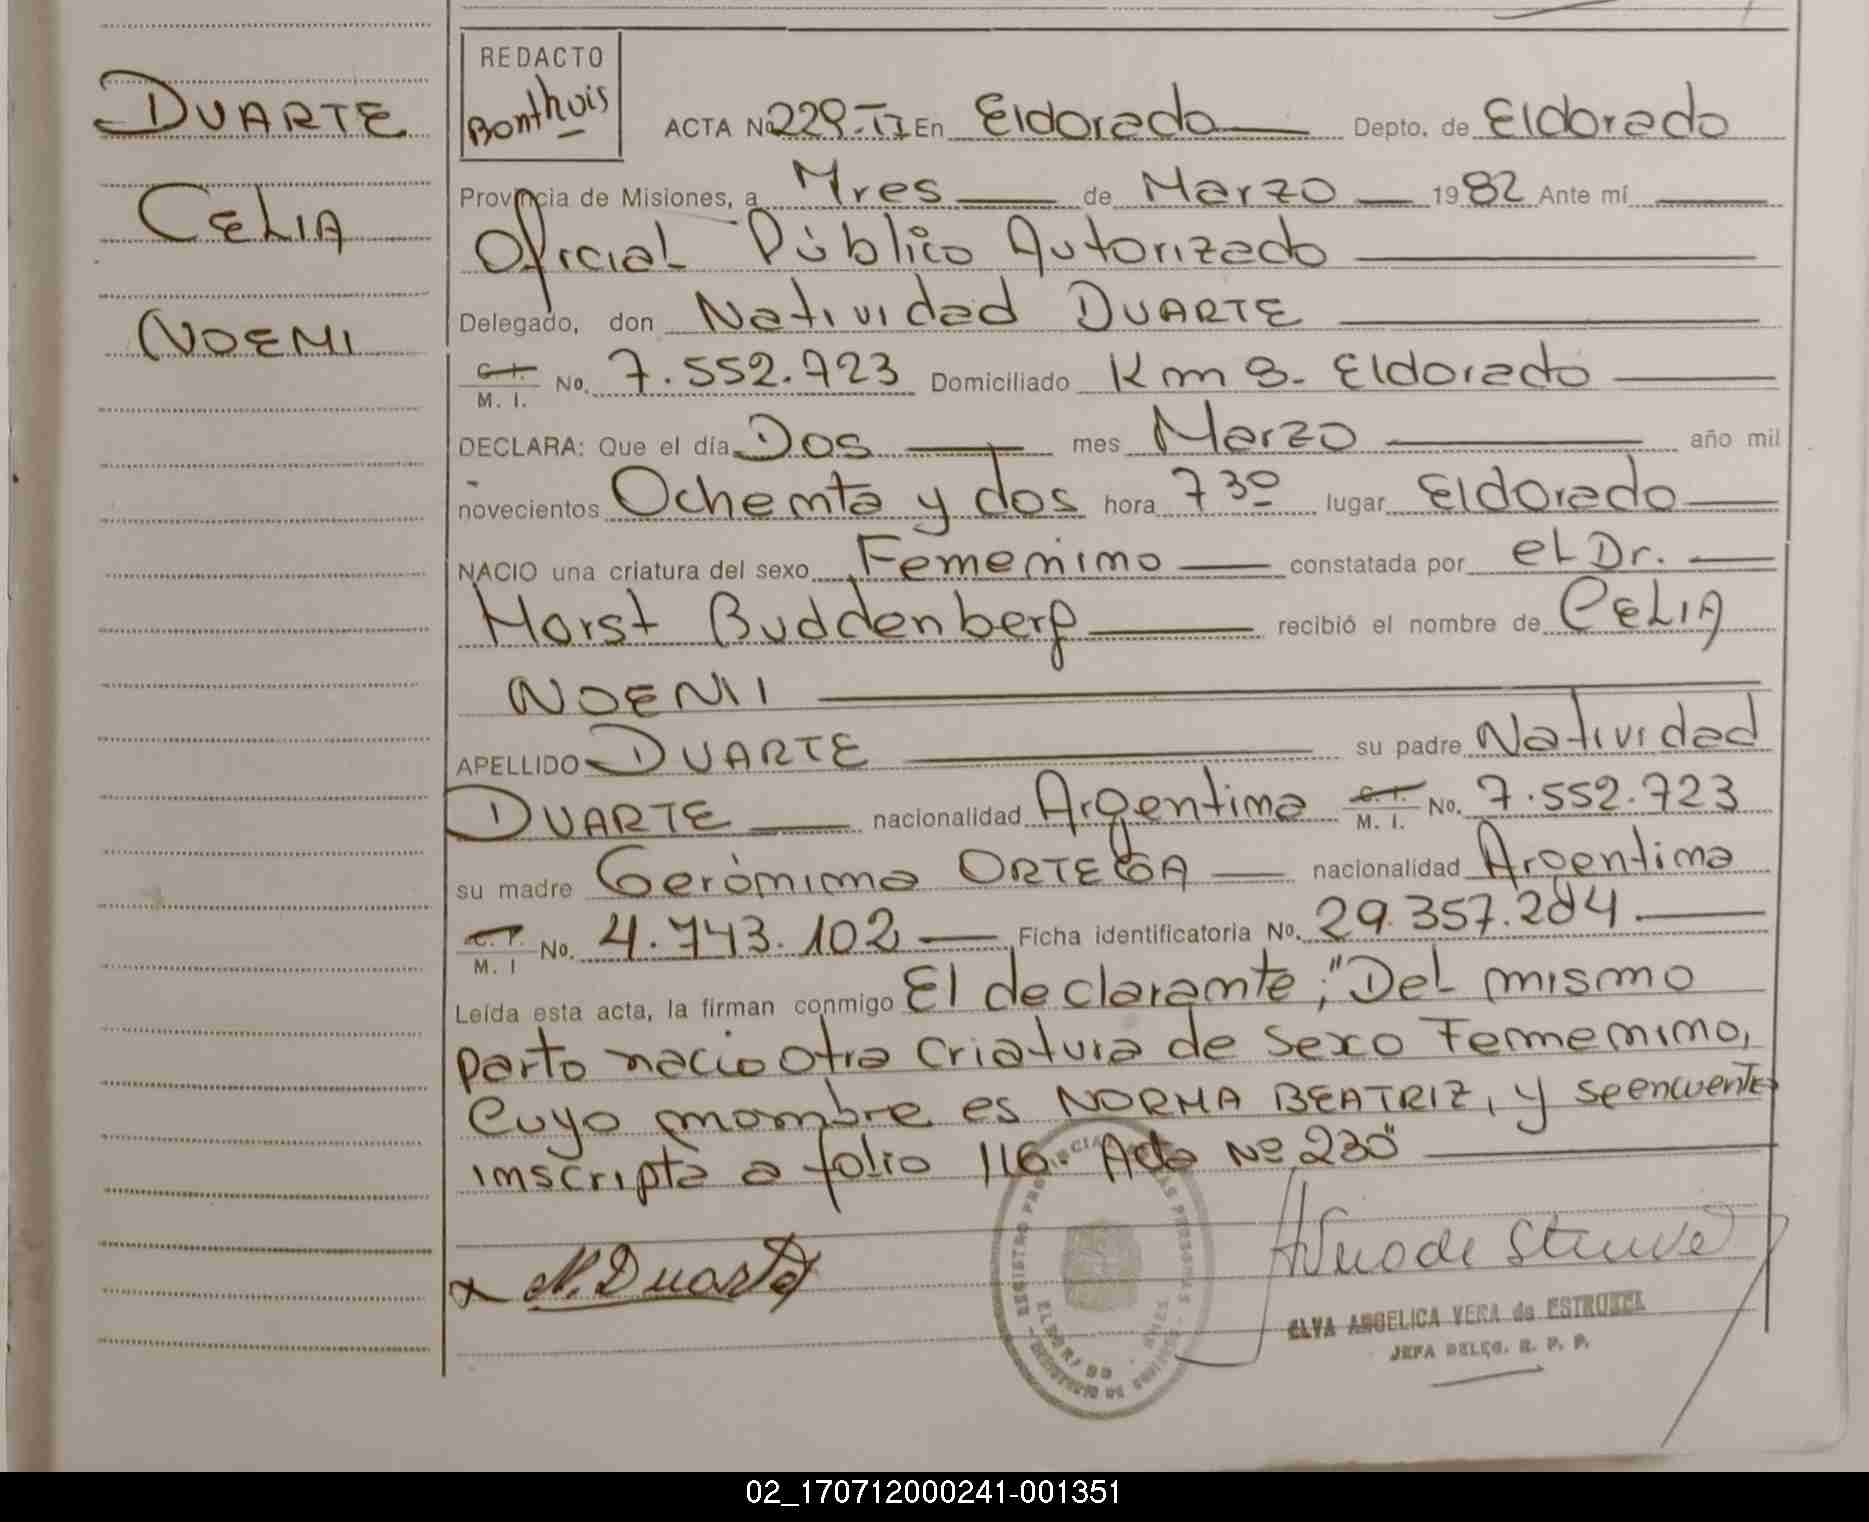 DUARTE
CELIA
NOEMI
REDACTO
Bonthuis
ACTA No 229-II En Eldorado Depto. de Eldorado
Provincia de Misiones, a Tres de Marzo 1982 Ante mí
Oficial Público Autorizado
Delegado, don Natividad DUARTE
C. I. M. I. No. 7.552.723 Domiciliado Km 8. Eldorado
DECLARA: Que el día Dos mes Marzo año mil
novecientos Ochenta y dos hora 7 30 lugar Eldorado
NACIO una criatura del sexo Femenino constatada por el Dr.
Horst Buddenberg recibió el nombre de CELIA
NOEMI
APELLIDO DUARTE su padre Natividad
DUARTE nacionalidad Argentina C. I. M. I. No. 7.552.723
su madre Gerónima ORTEGA nacionalidad Argentina
C. I. M. I No. 4.743.102 Ficha identificatoria No. 29.357.284
Leída esta acta, la firman conmigo El declarante; "Del mismo
parto nacio otra criatura de sexo Femenino,
cuyo nombre es NORMA BEATRIZ, y se encuentra
inscripta a folio 116. Acta Nº 230"
N. Duarte
ELVA ANGELICA VERA de ESTRUBEL
JEFA DELEG. R. P. P.
02_170712000241-001351